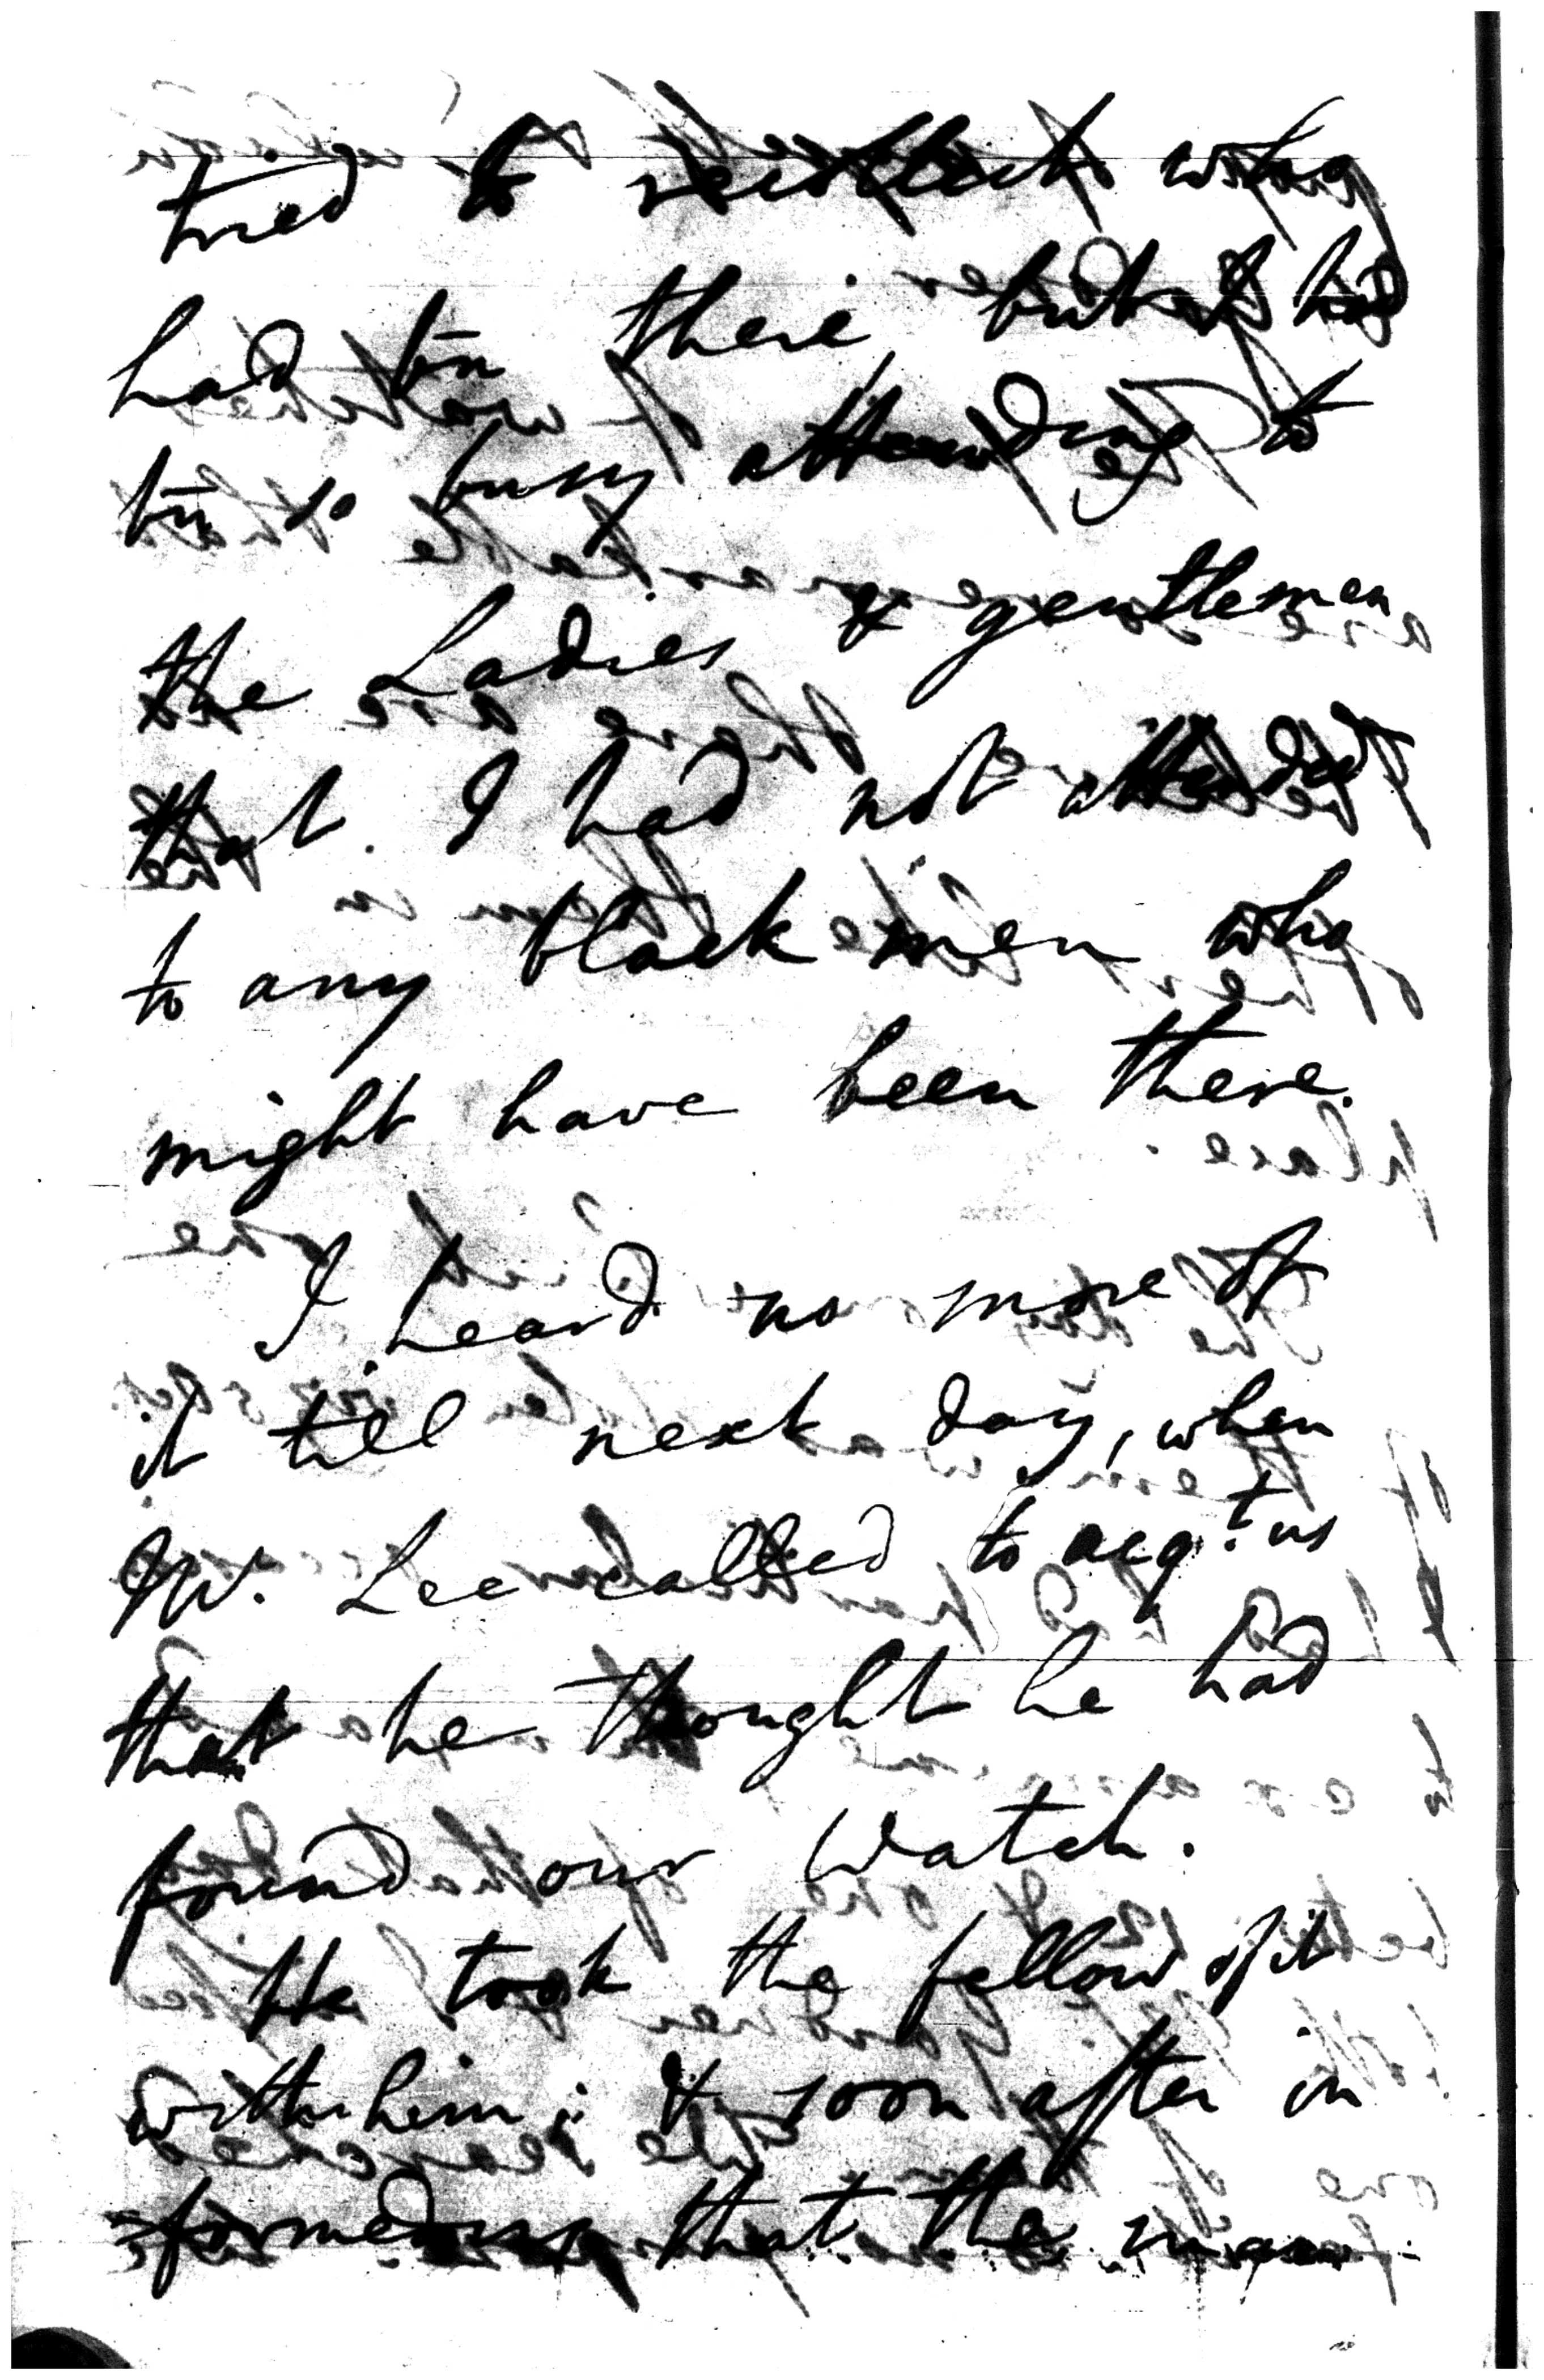 tried to recollect who
had bn there, but I had
bn so busy attending to
the Ladies & gentlemen
that. I had not attended
to any black men who
might have been there.
I heard no more of
it till next day, when
Mr. Lee called to acqt. us
that he thought he had
found our Watch.
He took the fellow of it
with him; & soon after in
formed us that the man